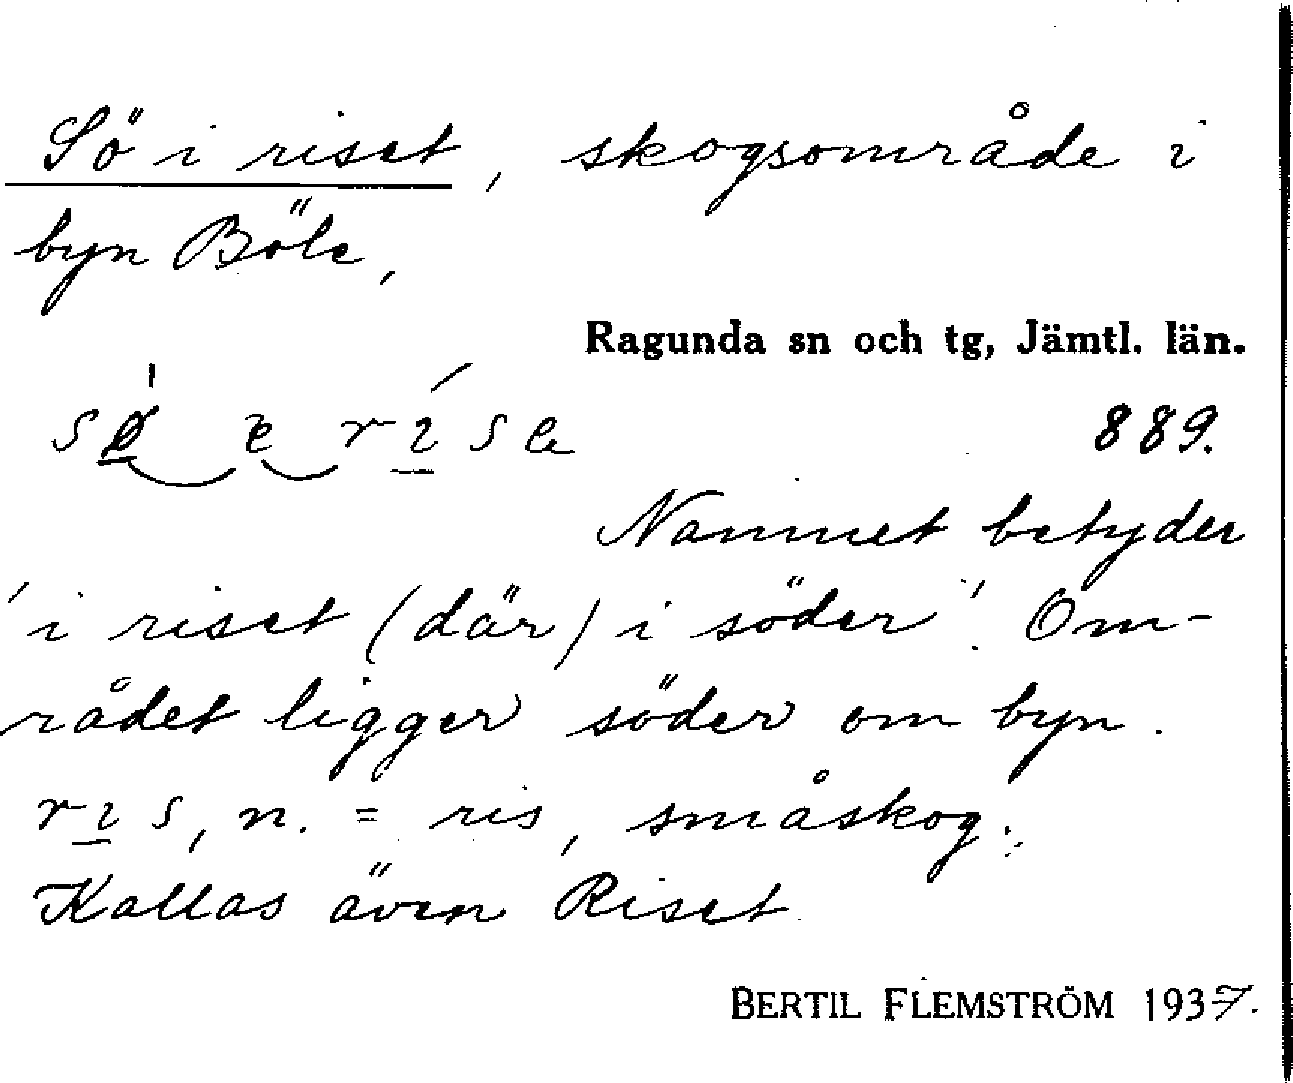 Sö i riset, skogsområde i
byn Böle,
Ragunda sn och tg, Jämtl. län.
889.
Namnet betyder
'i riset (där) i söder'. Om-
rådet ligger söder om byn.
n. = ris, småskog.
Kallas även Riset
BERTIL FLEMSTRÖM 1937.